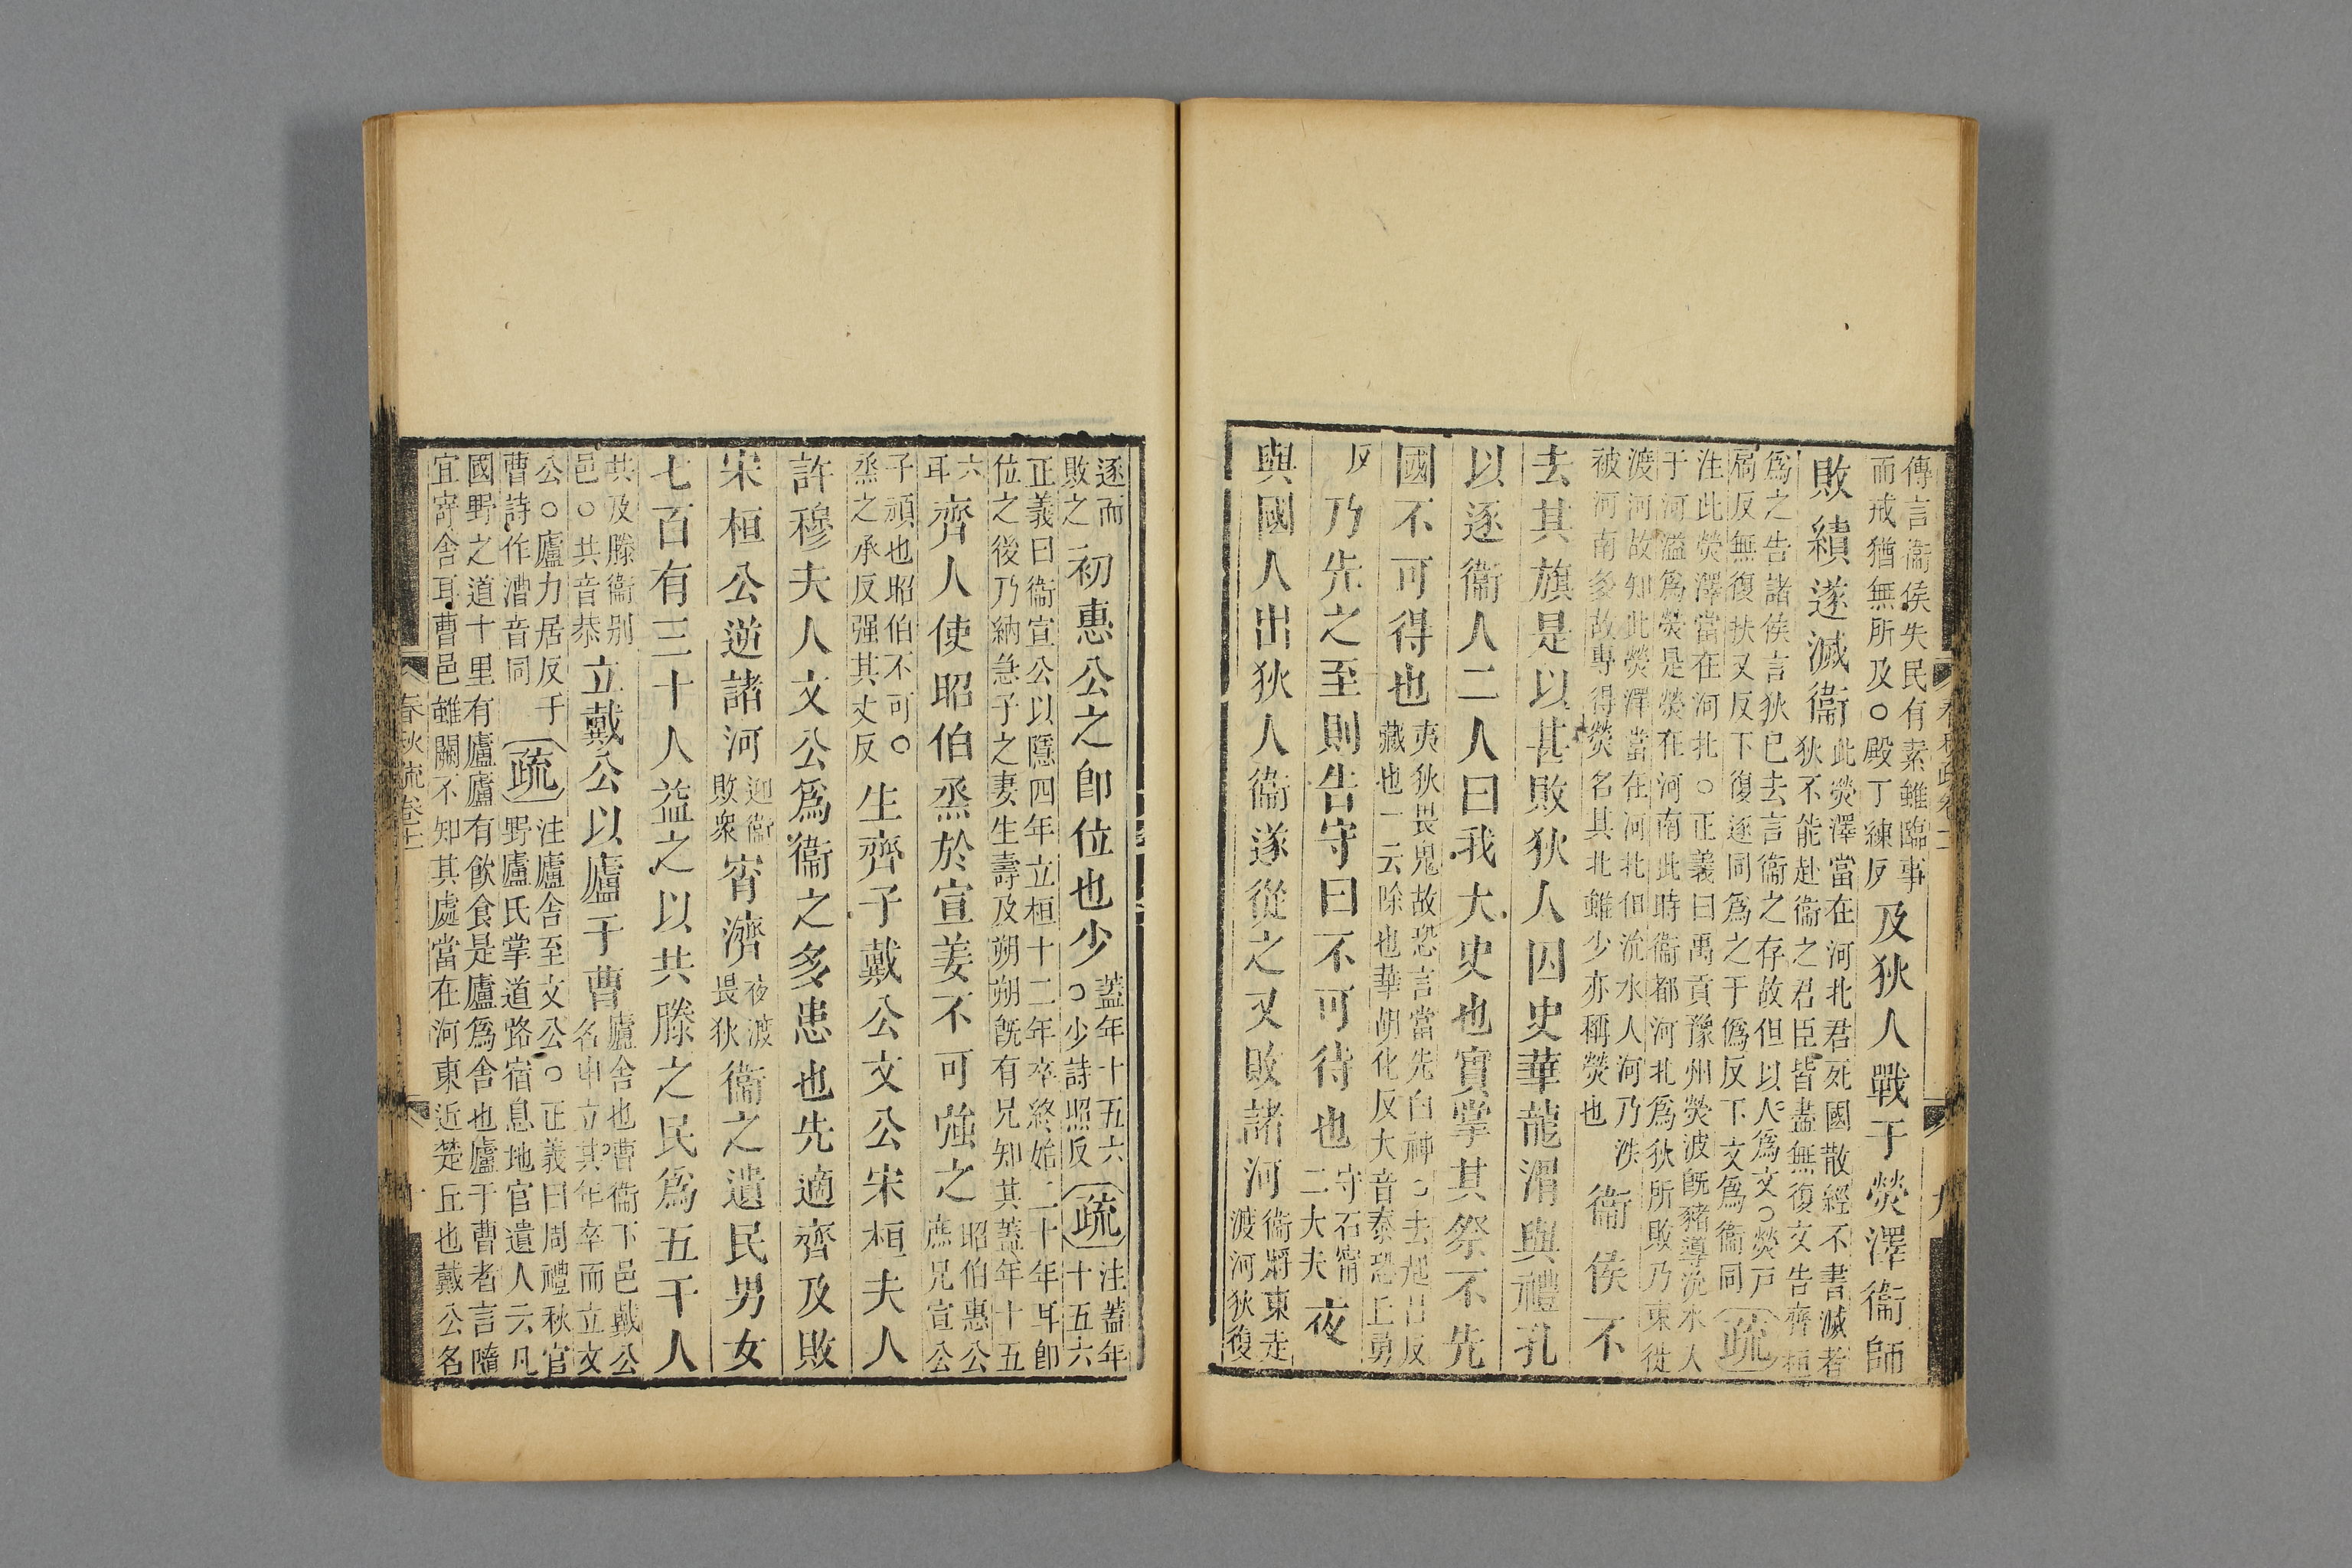 傳言衞侯失民有素雖臨事
而戒猶無所及○殿丁練反及狄人戰于熒澤衞師
敗績遂滅衞此熒澤當在河北君死國散經不書滅者
狄不能赴衞之君臣皆盡無復文告齊桓
爲之告諸侯言狄已去言衞之存故但以人爲文○熒戸
扃反無復扶又反下復逐同爲之于僞反下文爲衞同疏
注此熒澤當在河北○正義曰禹貢豫州熒波既豬導沇水入
于河溢爲熒是熒在河南此時衞都河北爲狄所敗乃東徙
渡河故知此熒澤當在河北但沇水入河乃泆
被河南多故專得熒名其北雖少亦稱熒也衞侯不
去其旗是以甚敗狄人囚史華龍滑與禮孔
以逐衞人二人曰我大史也實掌其祭不先
國不可得也夷狄畏鬼故恐言當先白神○去起呂反
藏也一云除也華胡化反大音泰恐丘勇
反乃先之至則告守曰不可待也守石甯
二大夫夜
與國人出狄人衞遂從之又敗諸河衞將東走
渡河狄復
逐而
敗之初惠公之卽位也少蓋年十五六
○少詩照反疏注蓋年
十五六
正義曰衞宣公以隱四年立桓十二年卒終始二十年耳卽
位之後乃納急子之妻生壽及朔朔既有兄知其蓋年十五
六
耳齊人使昭伯烝於宣姜不可強之昭伯惠公
庶兄宣公
子頑也昭伯不可○
烝之承反强其丈反生齊子戴公文公宋桓夫人
許穆夫人文公爲衞之多患也先適齊及敗
宋桓公逆諸河迎衞
敗衆宵濟夜渡
畏狄衞之遺民男女
七百有三十人益之以共滕之民爲五千人
共及滕衞别
邑○共音恭立戴公以廬于曹廬舍也曹衞下邑戴公
名申立其年卒而立文
公○廬力居反于
曹詩作漕音同疏注廬舍至文公○正義曰周禮秋官
野廬氏掌道路宿息地官遺人云凡
國野之道十里有廬廬有飲食是廬爲舍也廬于曹者言隨
宜寄舍耳曹邑雖闕不知其處當在河東近楚丘也戴公名
春秋疏卷十一